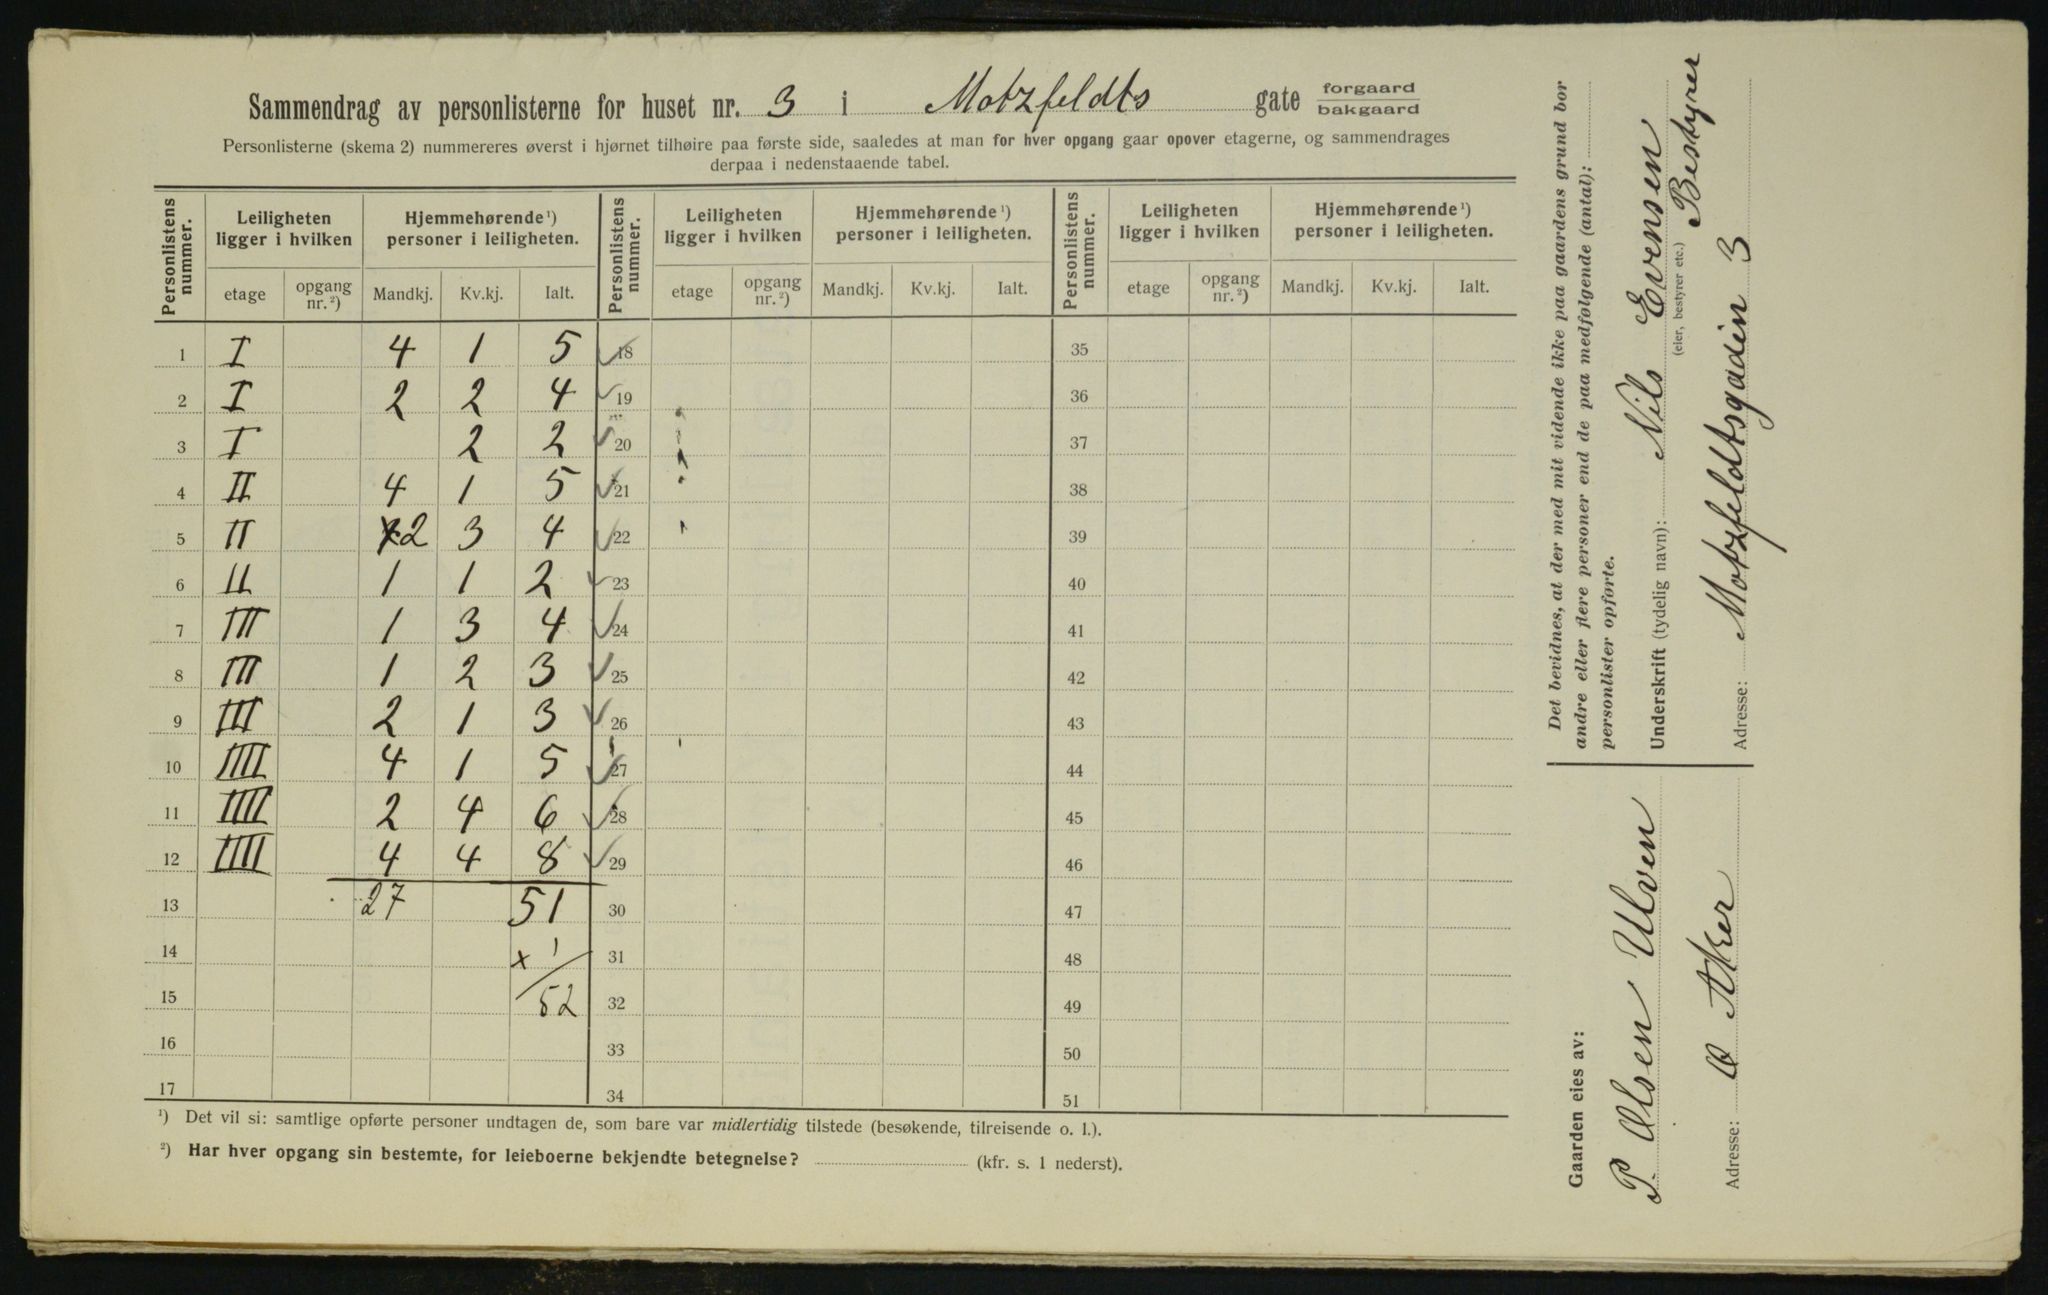 Sammendrag av personlisterne for huset nr. 3 i Motzfeldts gate forgaard
bakgaard
Personlisterne (skema 2) nummereres øverst i hjørnet tilhøire paa første side, saaledes at man for hver opgang gaar opover etagerne, og sammendrages
derpaa i nedenstaaende tabel.
Personlistens nummer. Leiligheten ligger i hvilken Hjemmehørende ¹) personer i leiligheten. Personlistens nummer. Leiligheten ligger i hvilken Hjemmehørende ¹) personer i leiligheten. Personlistens nummer. Leiligheten ligger i hvilken Hjemmehørende ¹) personer i leiligheten.
etage opgang nr. ²) Mandkj. Kv.kj. Ialt. etage opgang nr. ²) Mandkj. Kv.kj. Ialt. etage opgang nr. ²) Mandkj. Kv.kj. Ialt.
1 I 4 1 5 18 35
2 I 2 2 4 19 36
3 I 2 2 20 37
4 II 4 1 5 21 38
5 II 2 3 4 22 39
6 II 1 1 2 23 40
7 III 1 3 4 24 41
8 III 1 2 3 25 42
9 III 2 1 3 26 43
10 IIII 4 1 5 27 44
11 IIII 2 4 6 28 45
12 IIII 4 4 8 29 46
13 27 51 30 47
14 x 1 31 48
15 52 32 49
16 33 50
17 34 51
¹) Det vil si: samtlige opførte personer undtagen de, som bare var midlertidig tilstede (besøkende, tilreisende o. l.).
²) Har hver opgang sin bestemte, for leieboerne bekjendte betegnelse? (kfr. s. 1 nederst).
Det bevidnes, at der med mit vidende ikke paa gaardens grund bor
andre eller flere personer end de paa medfølgende (antal):
personlister opførte.
Underskrift (tydelig navn): Nils Evensen
(eier, bestyrer etc.) Bestyrer
Adresse: Motzfeldtsgaden 3
Gaarden eies av:
P. Olsen Ulven
Adresse: Aker